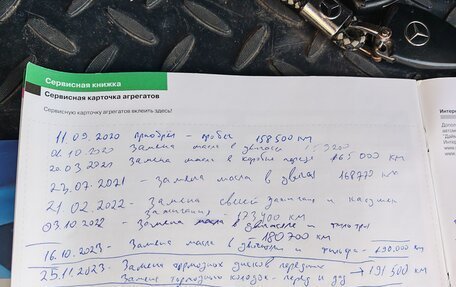 Сервисная книжка
Сервисная карточка агрегатов
Сервисную карточку агрегатов вклеить здесь!
11.09.2020 приобрёл - пробег 158500 км
01.10.2020 Замена масла в двигателе
20.03.2020 Замена масла в коробке 165 000 км
23.07.2021 - Замена масла в двигат 168770 км
21.02.2022 - Замена свечей зажигания и катушек
зажигания 173400 км
03.10.2022 - Замена масла в двигателе и фильтры
180700 км
16.10.2023 - Замена масла в двигателе и фильтра - 190.000 км
25.11.2023 - Замена тормозных дисков передних → 191 500 км
Замена тормозных колодок - перед и зад
Интерн
Допол
автом
"Дай
Интер
www.
www.